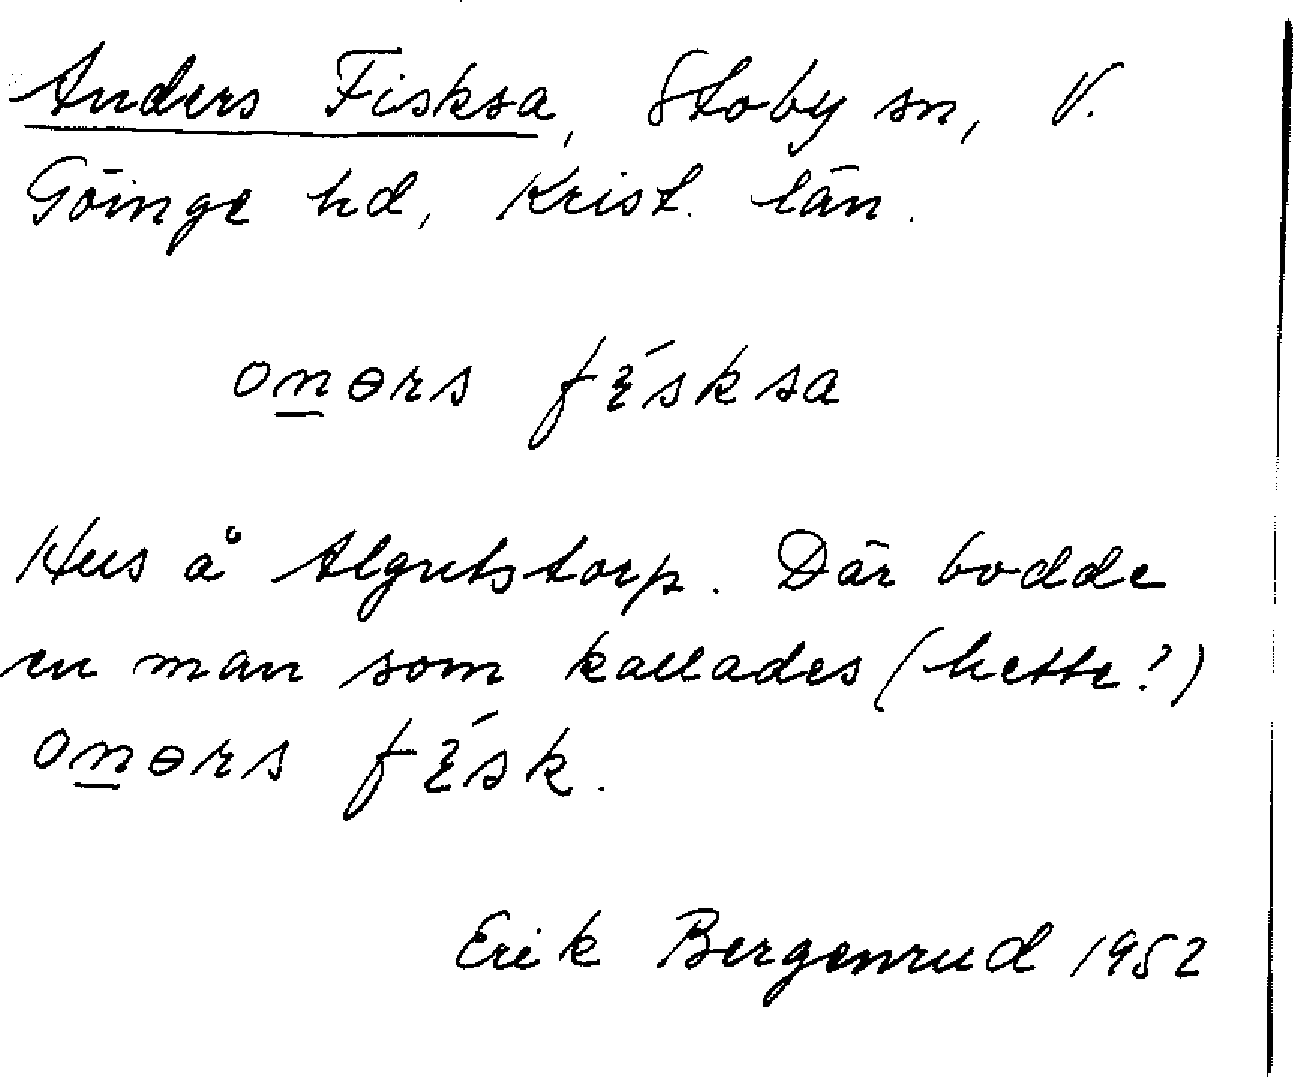 Anders Fisksa, Stoby sn, V.
Göinge hd, Krist. län.
on̲ɵrs fɛ́sksa
Hus å Algutstorp. Där bodde
en man som kallades (hette?)
on̲ɵrs fɛ́sk.
Erik Bergenrud 1952